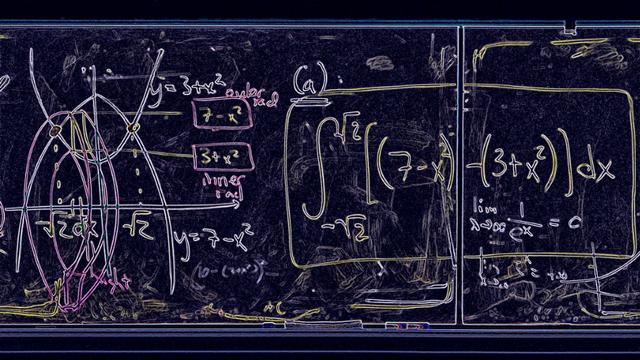 y=3+x²
outer
rad
7-x²
3+x²
inner
rad
-√2 dx √2
y=7-x²
(a)
∫ √2 -√2 [(7-x²)-(3+x²)]dx
lim x→∞ 1/e^x = 0
lim